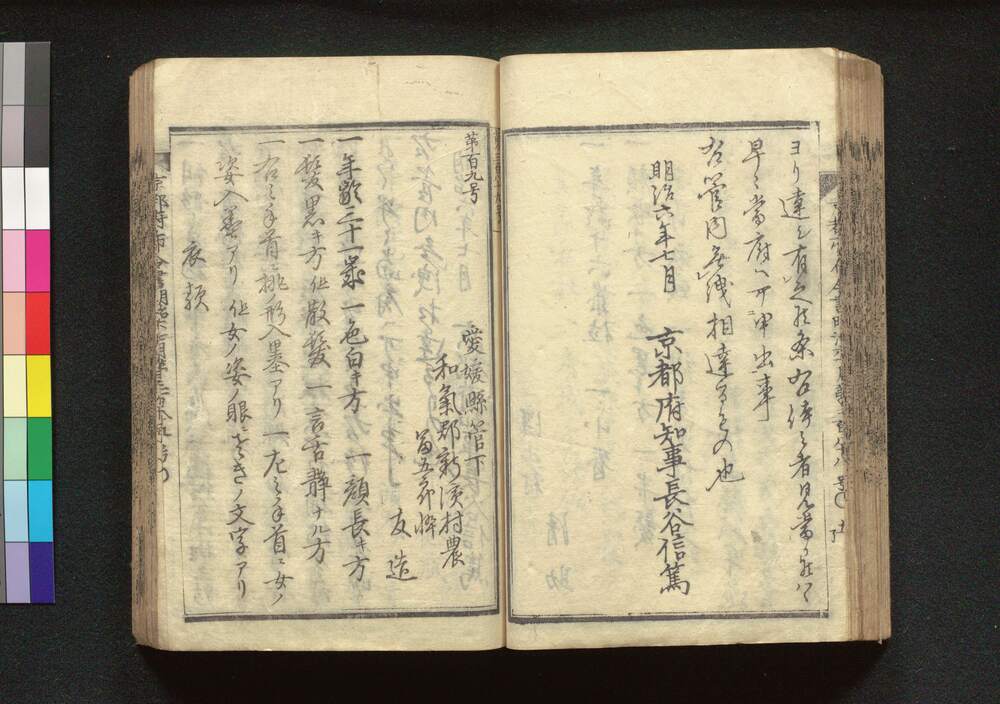 ヨリ達シ有之候条右体之者見当候ハヽ
早々当府ヘ可申出事
右管内無洩相達するもの也
明治六年七月 京都府知事長谷信篤
第百九号
愛媛縣管下
和氣郡新濱村農
富五郎悴
友造
一年齢三十一歳 一色白キ方 一顔長キ方
一髪黒キ方但散髪 一言舌静ナル方
一右之手首ニ桃ノ形入墨アリ 一左之手首ニ女ノ
姿入墨アリ 但女ノ姿ノ眼ニときノ文字アリ
衣類